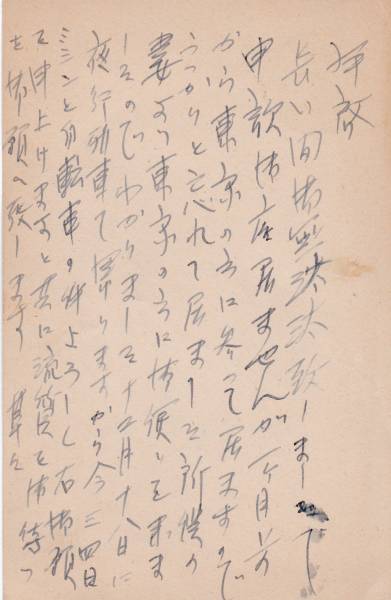 拝啓
長い間御無沙汰致しまして
申訳御座居ませんが一ヶ月前
から東京の方に参って居ますので
うっかりと忘れて居ました所僕の
妻より東京の方に御便りを来ま
したのでわかりました十二月十八日に
夜行列車で帰りますから今三四日
ミシンと自転車の件よろしく右御願
て申上げますと共に流質を御待つ
を御願へ致します 草々